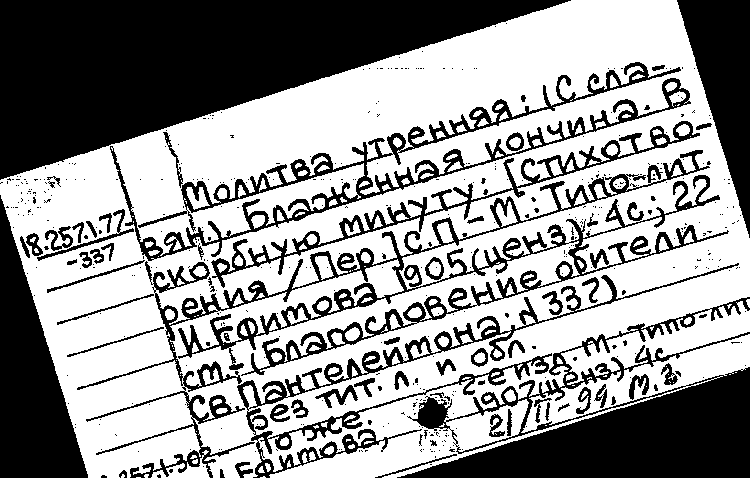 Молитва утренняя: (С сла-
вян.). Блаженная кончина. В
скорбную минуту: [Стихотво-
рения / Пер.] С.П. - М.: Типо-лит.
И. Ефимова, 1905 (ценз). - 4с.; 22
см. - (Благословение обители
Св. Пантелеймона; N 337).
Без тит. л. и обл.
То же. 2-е изд. М.: Типо-лит
И. Ефимова, 1907 (ценз). 4с.
21/II-99. М.З.
18.257.1.77-
-337
257.1.302-